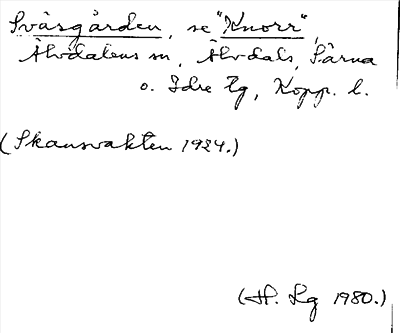 Svåsgården, se "Knorr",
Älvdalens sn, Älvdals, Särna
o. Idre tg, Kopp. l.
(Skansvakten 1924.)
(H. Lg 1980.)